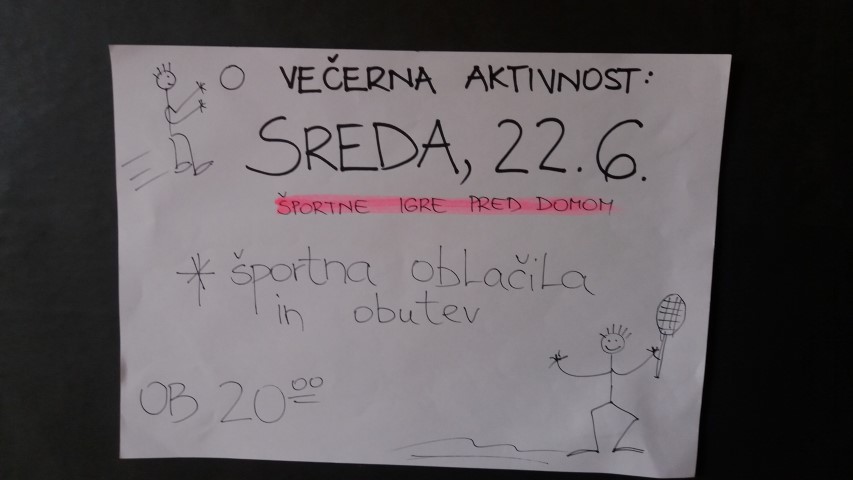 VEČERNA AKTIVNOST:
SREDA, 22.6.
ŠPORTNE IGRE PRED DOMOM
* športna oblačila
in obutev
OB 20⁰⁰